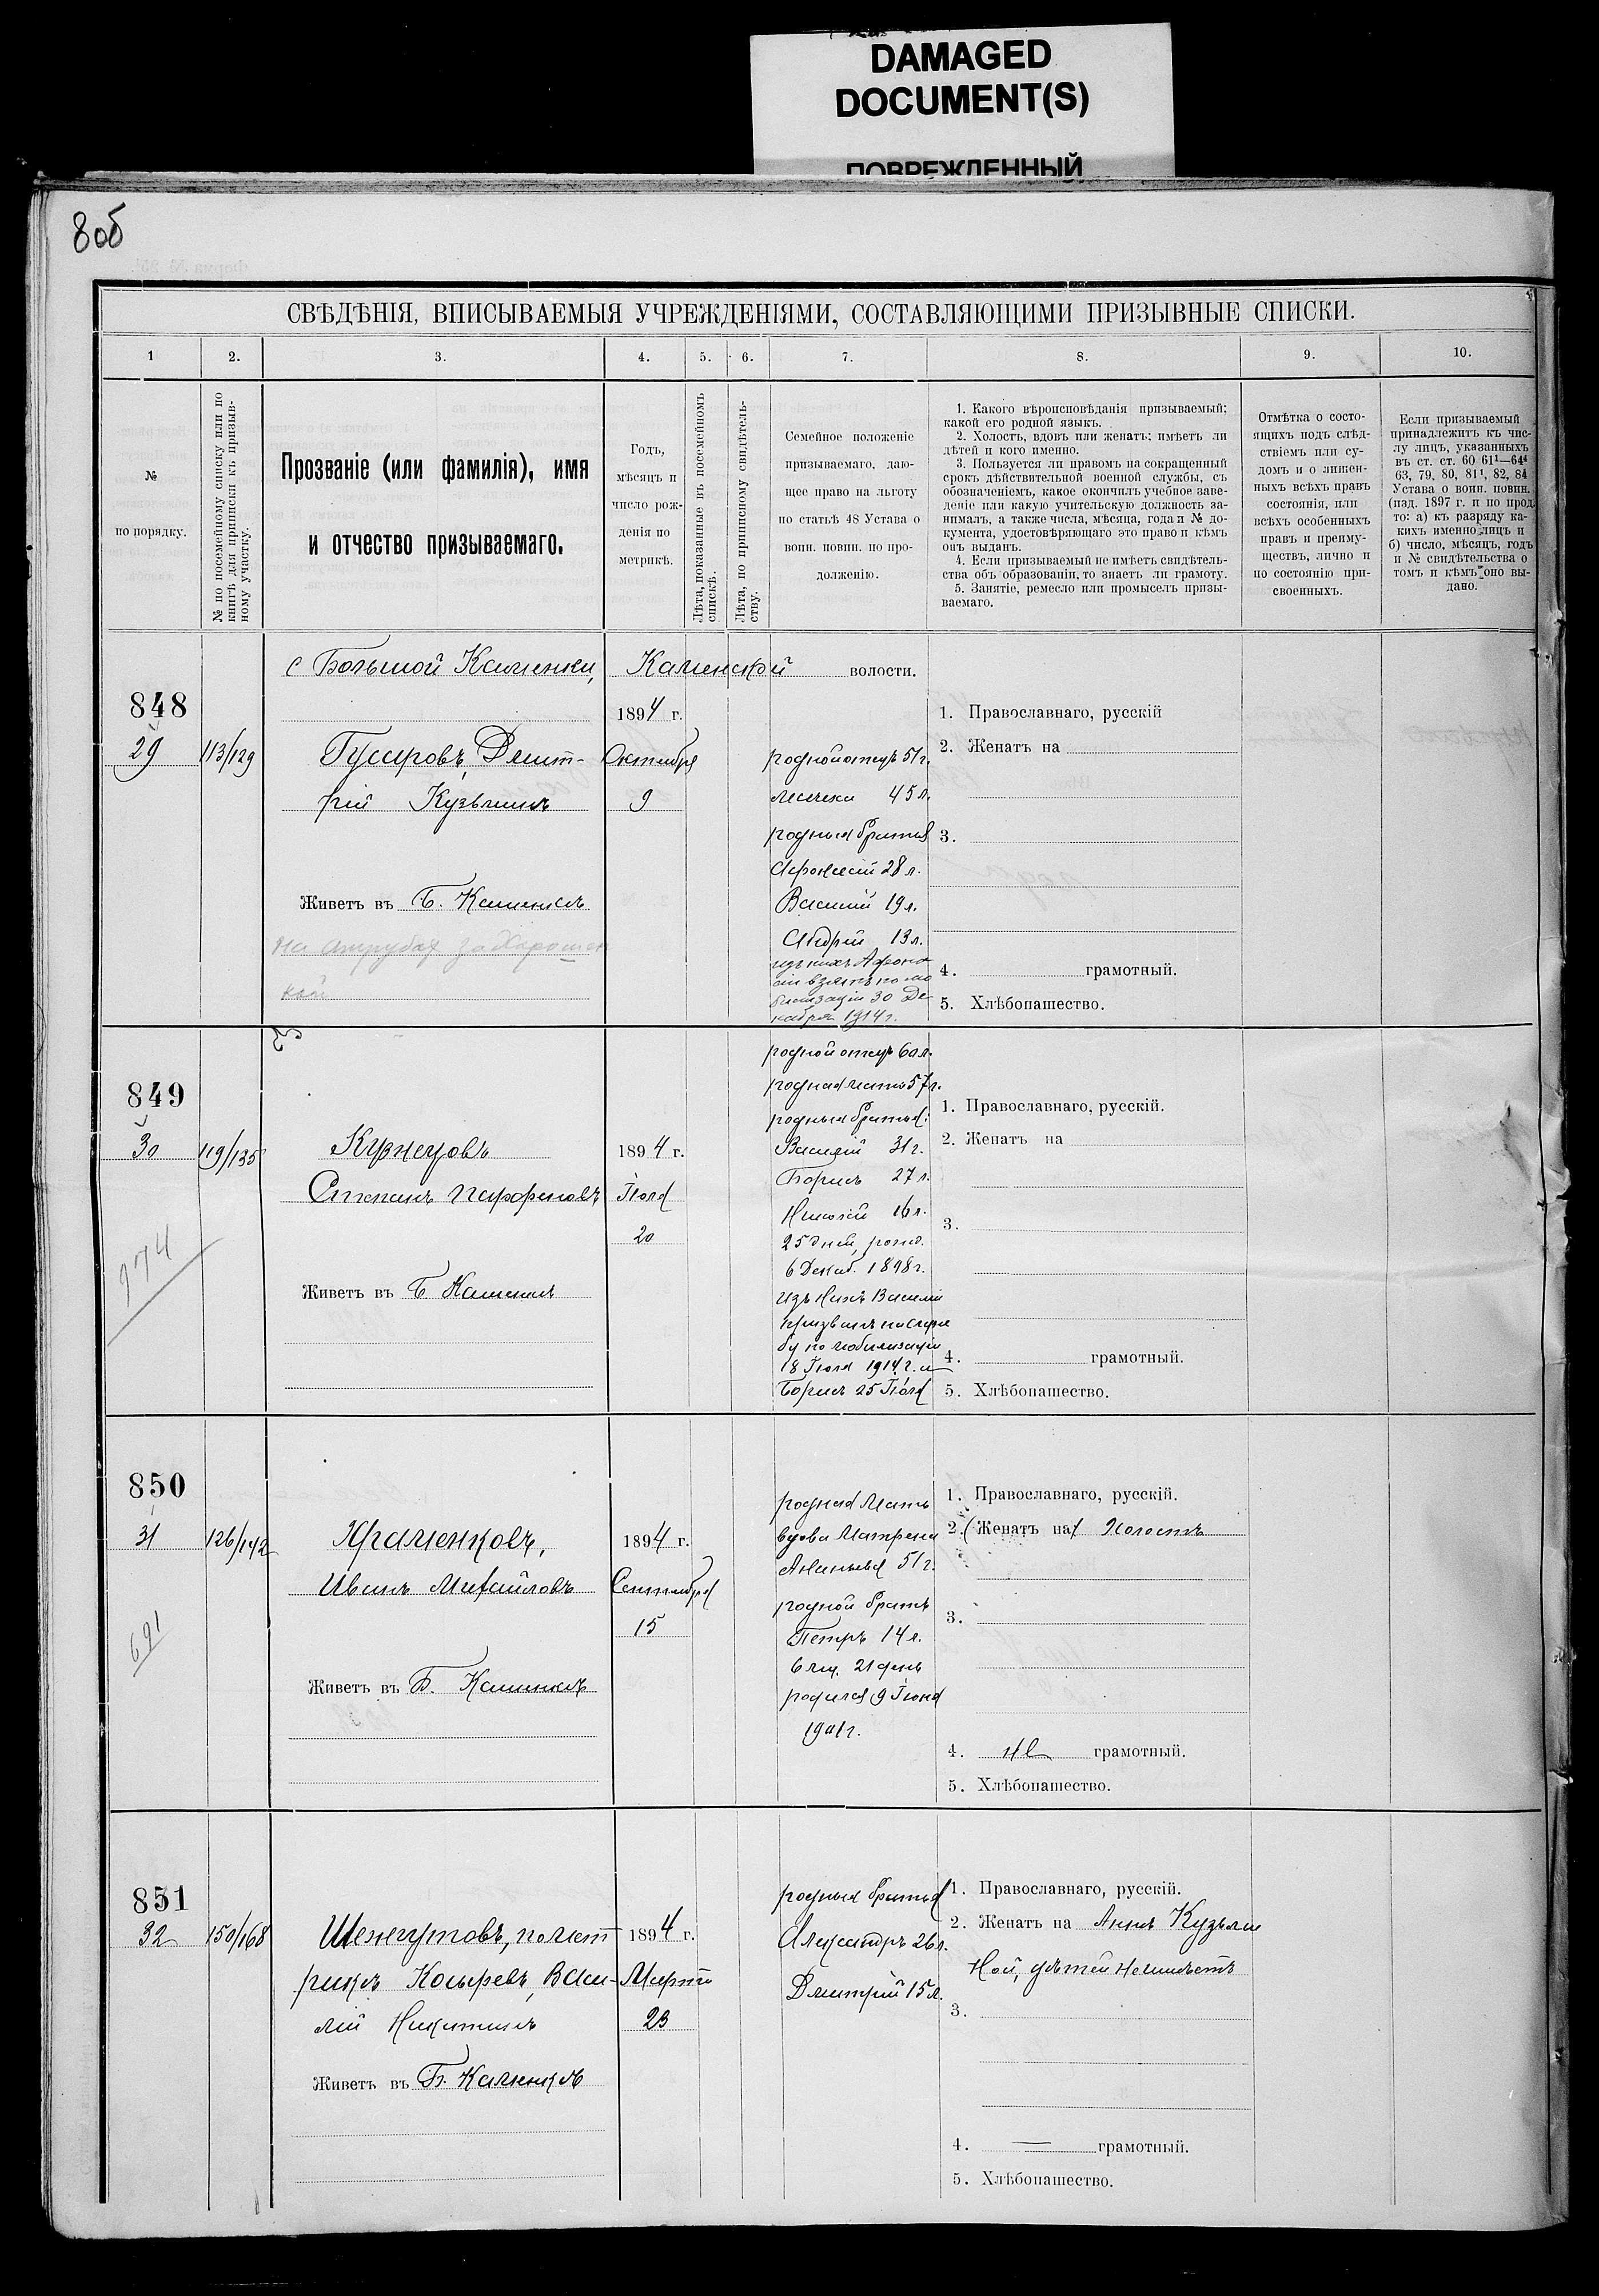 DAMAGED
DOCUMENT(S)
ПОВРЕЖДЕННЫЙ
8об
СВѢДѢНІЯ, ВПИСЫВАЕМЫЯ УЧРЕЖДЕНІЯМИ, СОСТАВЛЯЮЩИМИ ПРИЗЫВНЫЕ СПИСКИ.
1 2. 3. 4. 5. 6. 7. 8. 9. 10.
№
по порядку.
№ по посемейному списку или по
книгѣ для приписки къ призыв-
ному участку.
Прозваніе (или фамилія), имя
и отчество призываемаго.
Годъ,
мѣсяцъ и
число рож-
денія по
метрикѣ.
Лѣта, показанные въ посемейномъ
спискѣ.
Лѣта, по приписному свидѣтель-
ству.
Семейное положеніе
призываемаго, даю-
щее право на льготу
по статьѣ 48 Устава о
воин. повин. по про-
долженію.
1. Какого вѣроисповѣданія призываемый;
какой его родной языкъ.
2. Холостъ, вдовъ или женатъ; имѣетъ ли
дѣтей и кого именно.
3. Пользуется ли правомъ на сокращенный
срокъ дѣйствительной военной службы, съ
обозначеніемъ, какое окончилъ учебное заве-
деніе или какую учительскую должность за-
нималъ, а также числа, мѣсяца, года и № до-
кумента, удостовѣряющаго это право и кѣмъ
онъ выданъ.
4. Если призываемый не имѣетъ свидѣтель-
ства объ образованіи, то знаетъ ли грамоту.
5. Занятіе, ремесло или промыселъ призы-
ваемаго.
Отмѣтка о состо-
ящихъ подъ слѣд-
ствіемъ или су-
домъ и о лишен-
ныхъ всѣхъ правъ
состоянія, или
всѣхъ особенныхъ
правъ и преиму-
ществъ, лично и
по состоянію при-
своенныхъ.
Если призываемый
принадлежитъ къ чис-
лу лицъ, указанныхъ
въ ст. ст. 60 61¹—64⁴
63, 79, 80, 81¹, 82, 84
Устава о воин. повин.
(изд. 1897 г. и по прод.
то: а) къ разряду ка-
кихъ именно лицъ и
б) число, мѣсяцъ, годъ
и № свидѣтельства о
томъ и кѣмъ оно вы-
дано.
с Большой Каменки, Каменской волости.
848
29
113/129
Гусаровъ, Дмит-
рій Кузьминъ
Живетъ въ Б. Каменкѣ
на отрубах за
1894 г.
Октября
9
родной отецъ 51 г.
мачеха 45 л.
родныя братья
Афонасій 28 л.
Василій 19 л.
Андрей 13 л.
изъ нихъ Афона-
сій взятъ по мо-
билизаціи 30 Де-
кабря 1914 г.
1. Православнаго, русскій
2. Женатъ на
3.
4. грамотный.
5. Хлѣбопашество.
849
30
119/135
974
Кузнецовъ
Степанъ Парфеновъ
Живетъ въ Б Каменкѣ
1894 г.
Іюля
20
родной отецъ 60 л.
родная мать 57 л.
родныя братья:
Василій 31 г.
Борисъ 27 л.
Николай 16 л.
25 дней, рожд.
6 Декаб. 1898 г.
изъ нихъ Василій
призванъ на служ
бу по мобилизаціи
18 Іюля 1914 г. и
Борисъ 25 Іюля
1. Православнаго, русскій.
2. Женатъ на
3.
4. грамотный.
5. Хлѣбопашество.
850
31
126/142
691
Храменковъ,
Иванъ Михайловъ
Живетъ въ Б. Каменкѣ
1894 г.
Сентября
15
родная мать
вдова Матрена
Ананьева 51 г.
родной братъ
Петръ 14 л.
6 мѣс. 21 день
родился 9 Іюня
1901 г.
1. Православнаго, русскій.
2. (Женатъ на) Холостъ
3.
4. не грамотный.
5. Хлѣбопашество.
851
32
150/168
Шенгутовъ, по мет
рикѣ Косыревъ, Васи-
лій Никитинъ
Живетъ въ Б. Каменкѣ
1894 г.
Марта
23
родныя братья
Александръ 26 л.
Дмитрій 15 л.
1. Православнаго, русскій.
2. Женатъ на Аннѣ Кузьми
ной, дѣтей не имѣетъ
3.
4. — грамотный.
5. Хлѣбопашество.